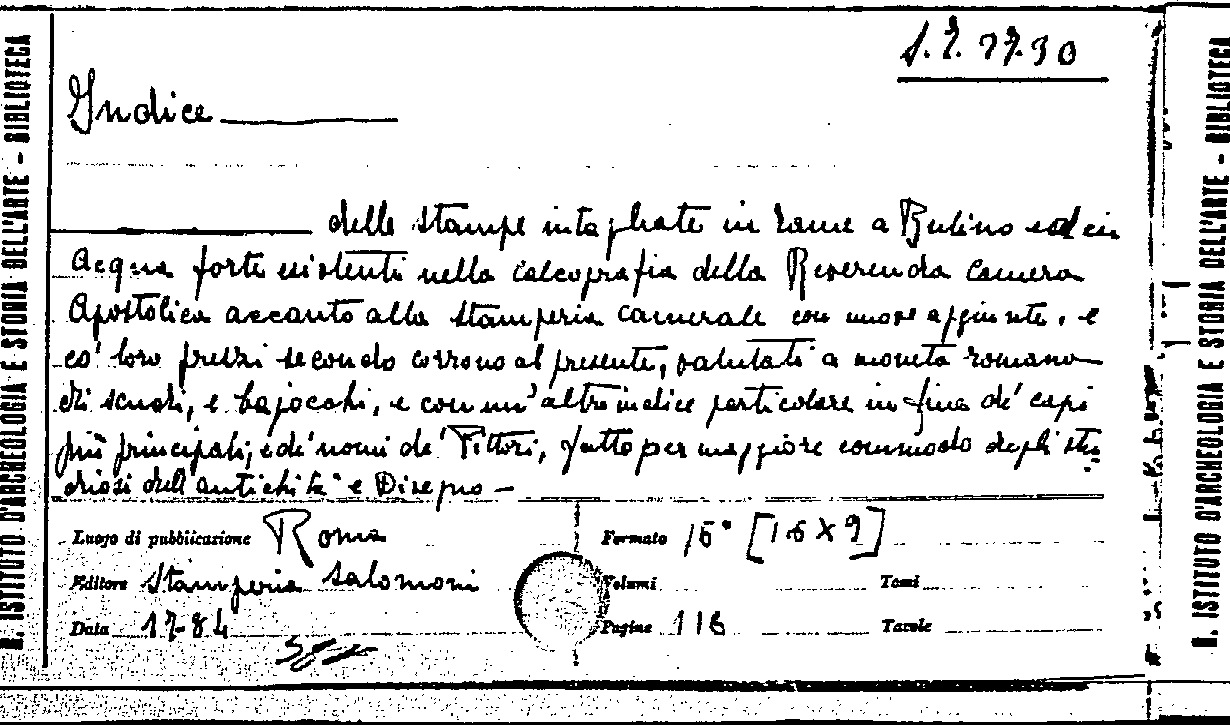 R. ISTITUTO D'ARCHEOLOGIA E STORIA DELL'ARTE - BIBLIOTECA
Indice
delle stampe intagliate in rame a Bulino ed in
Acqua forte esistenti nella calcografia della Reverenda camera
Apostolica accanto alla stamperia camerale con nuove aggiunte, e
co' loro prezzi secondo corrono al presente, valutati a moneta romana
di scudi, e bajocchi, e con un' altro indice particolare in fine de' capi
più principali, e de' nomi de' Pittori, fatto per maggiore commodo degli stu
diosi dell'antichità e Disegno -
Luogo di pubblicazione Roma
Formato 16° [16 X 9]
Editore Stamperia Salomoni
Volumi
Tomi
Data 1784
Pagine 116
Tavole
R. ISTITUTO D'ARCHEOLOGIA E STORIA DELL'ARTE - BIBLIOTECA